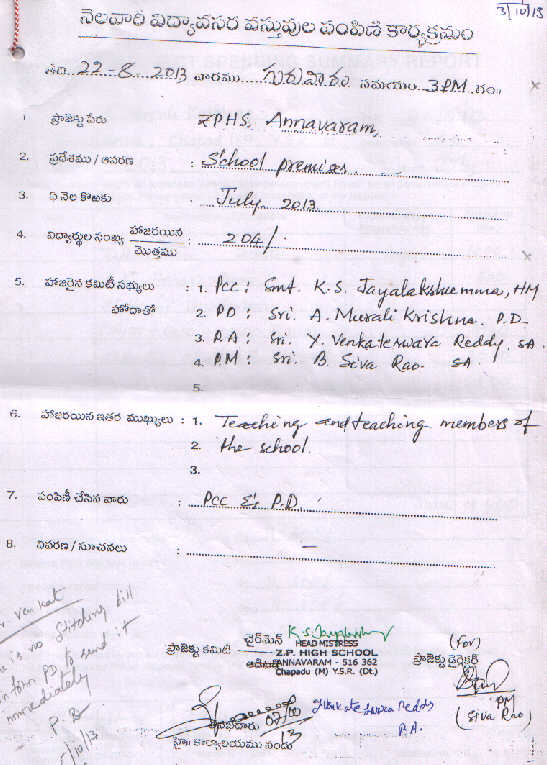 3/10/13
నెలవారీ విద్యావసర వస్తువుల పంపిణీ కార్యక్రమం
తేది 22-8-2013 వారము గురువారం సమయం 3PM గం.
1 ప్రాజెక్టు పేరు ZPHS, Annavaram,
2. ప్రదేశము / ఆవరణ : School premises.
3. ఏ నెల కొఱకు : July 2013
4. విద్యార్థుల సంఖ్య హాజరయిన : 204/-
మొత్తము
5. హాజరైన కమిటీ సభ్యులు : 1. PCC : Smt. K.S. Jayalakshumma, HM
హోదాతో 2. PD : Sri. A. Murali Krishna. P.D.
3. P.A : Sri. Y. Venkateswara Reddy. SA.
4. P.M : Sri. B. Siva Rao. SA
5.
6. హాజరయిన ఇతర ముఖ్యులు : 1. Teaching and teaching members of
2. the school.
3.
7. పంపిణీ చేసిన వారు : PCC & P.D.
8. వివరణ / సూచనలు : —
venkat
is no stitching bill
inform PD to send it
immediately
P B
/10/13
ప్రాజెక్టు కమిటీ ఛైర్‌మెన్ K.S. Jayalakshmi
HEAD MISTRESS
Z.P. HIGH SCHOOL
ANNAVARAM - 516 362
Chapadu (M) Y.S.R. (Dt.)
(for)
ప్రాజెక్టు డైరెక్టర్
PM
(Siva Rao)
Venkateswara Reddy
P.A.
03/10/13
కార్యాలయము నందు